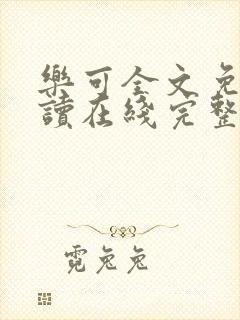 樂可全文免
讀在綫完整
霓兔兔